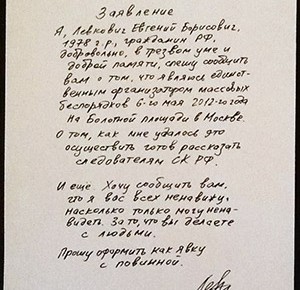 Заявление
Я, Левкович Евгений Борисович,
1978 г.р., гражданин РФ,
добровольно, в трезвом уме и
доброй памяти, спешу сообщить
вам о том, что являюсь единст-
венным организатором массовых
беспорядков 6-го мая 2012-го года
на Болотной площади в Москве.
О том, как мне удалось это
осуществить готов рассказать
следователям СК РФ.
И еще. Хочу сообщить вам,
что я вас всех ненавижу,
насколько только могу нена-
видеть. За то, что вы делаете
с людьми.
Прошу оформить как явку
с повинной.